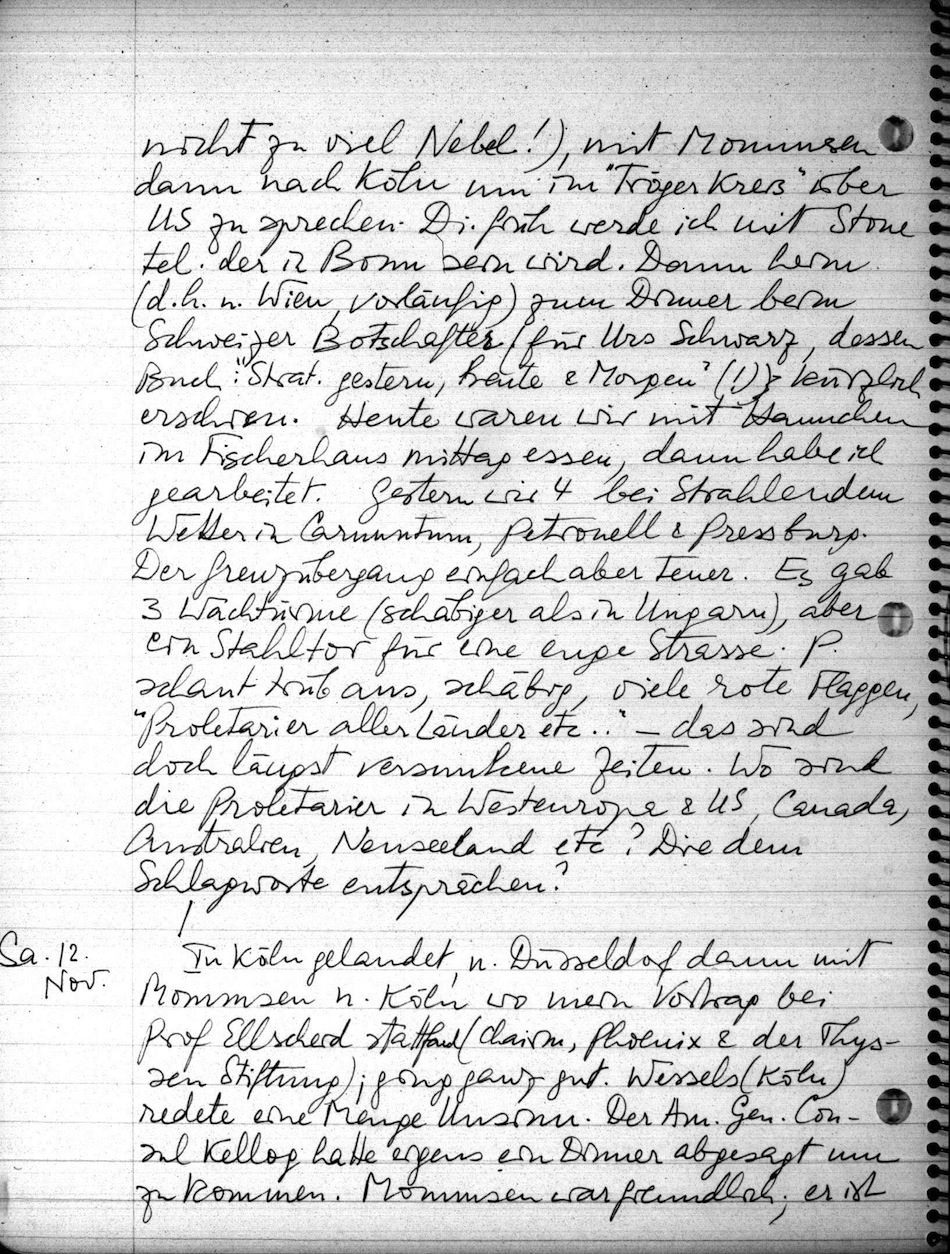 nicht zu viel Nebel!), mit Mommsen
dann nach Köln um im "Tröger Kreis" über
US zu sprechen. Di. früh werde ich mit Stone
tel. der in Bonn sein wird. Dann heim
(d.h. n. Wien, vorläufig) zum Dinner beim
Schweizer Botschafter (für Urs Schwarz, dessen
Buch: "Strat. gestern, heute & Morgen" (!) kürzlich
erschien. Heute waren wir mit Hannchen
im Fischerhaus mittag essen, dann habe ich
gearbeitet. Gestern wir 4 bei Strahlendem
Wetter in Carnuntum, Petronell & Pressburg.
Der Grenzübergang einfach aber teuer. Es gab
3 Wachtürme (schäbiger als in Ungarn), aber
ein Stahltor für eine enge Strasse. P.
schaut trüb aus, schäbig, viele rote Flaggen,
"Proletarier aller Länder etc.." – das sind
doch längst versunkene Zeiten. Wo sind
die Proletarier in Westeuropa & US, Canada,
Australien, Neuseeland etc? Die dem
Schlagworte entsprächen?
Sa. 12. Nov. In Köln gelandet, n. Düsseldof dann mit
Mommsen n. Köln, wo mein Vortrag bei
Prof Ellscheid stattfand (Chairm, Phoenix & der Thys-
sen Stiftung); ging ganz gut. Wessels (Köln)
redete eine Menge Unsinn. Der Am. Gen. Con-
sul Kellog hatte eigens ein Dinner abgesagt um
zu kommen. Mommsen war freundlich; er ist